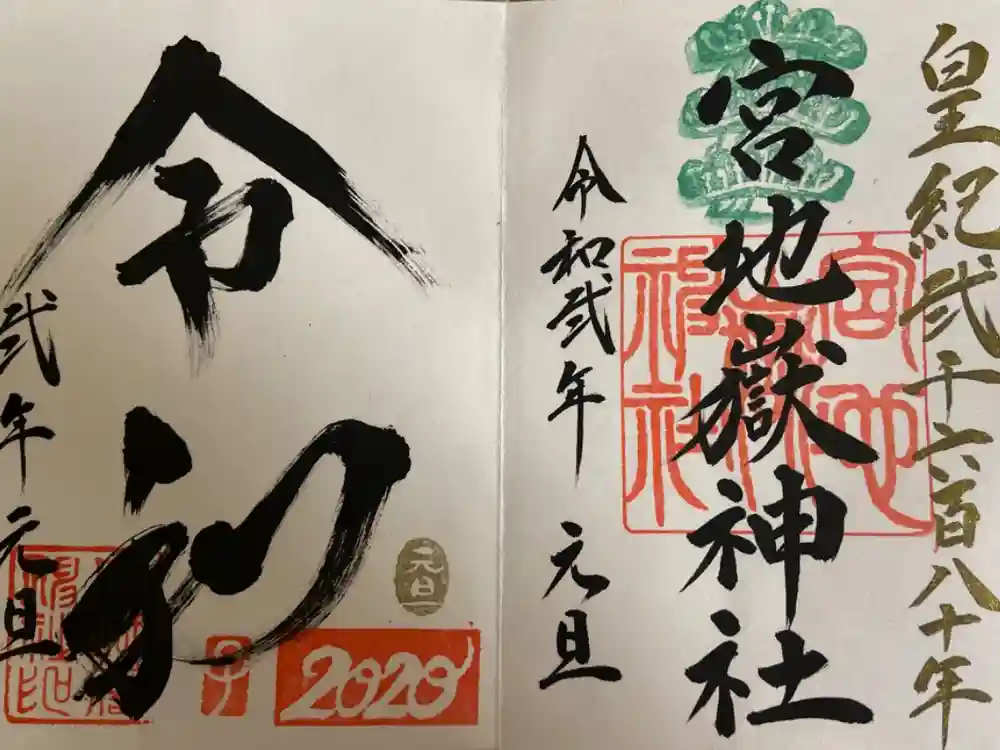 皇紀弐千六百八十年
宮地嶽神社
令和弐年 元旦
元旦
2020
子
令和
弐年 元旦